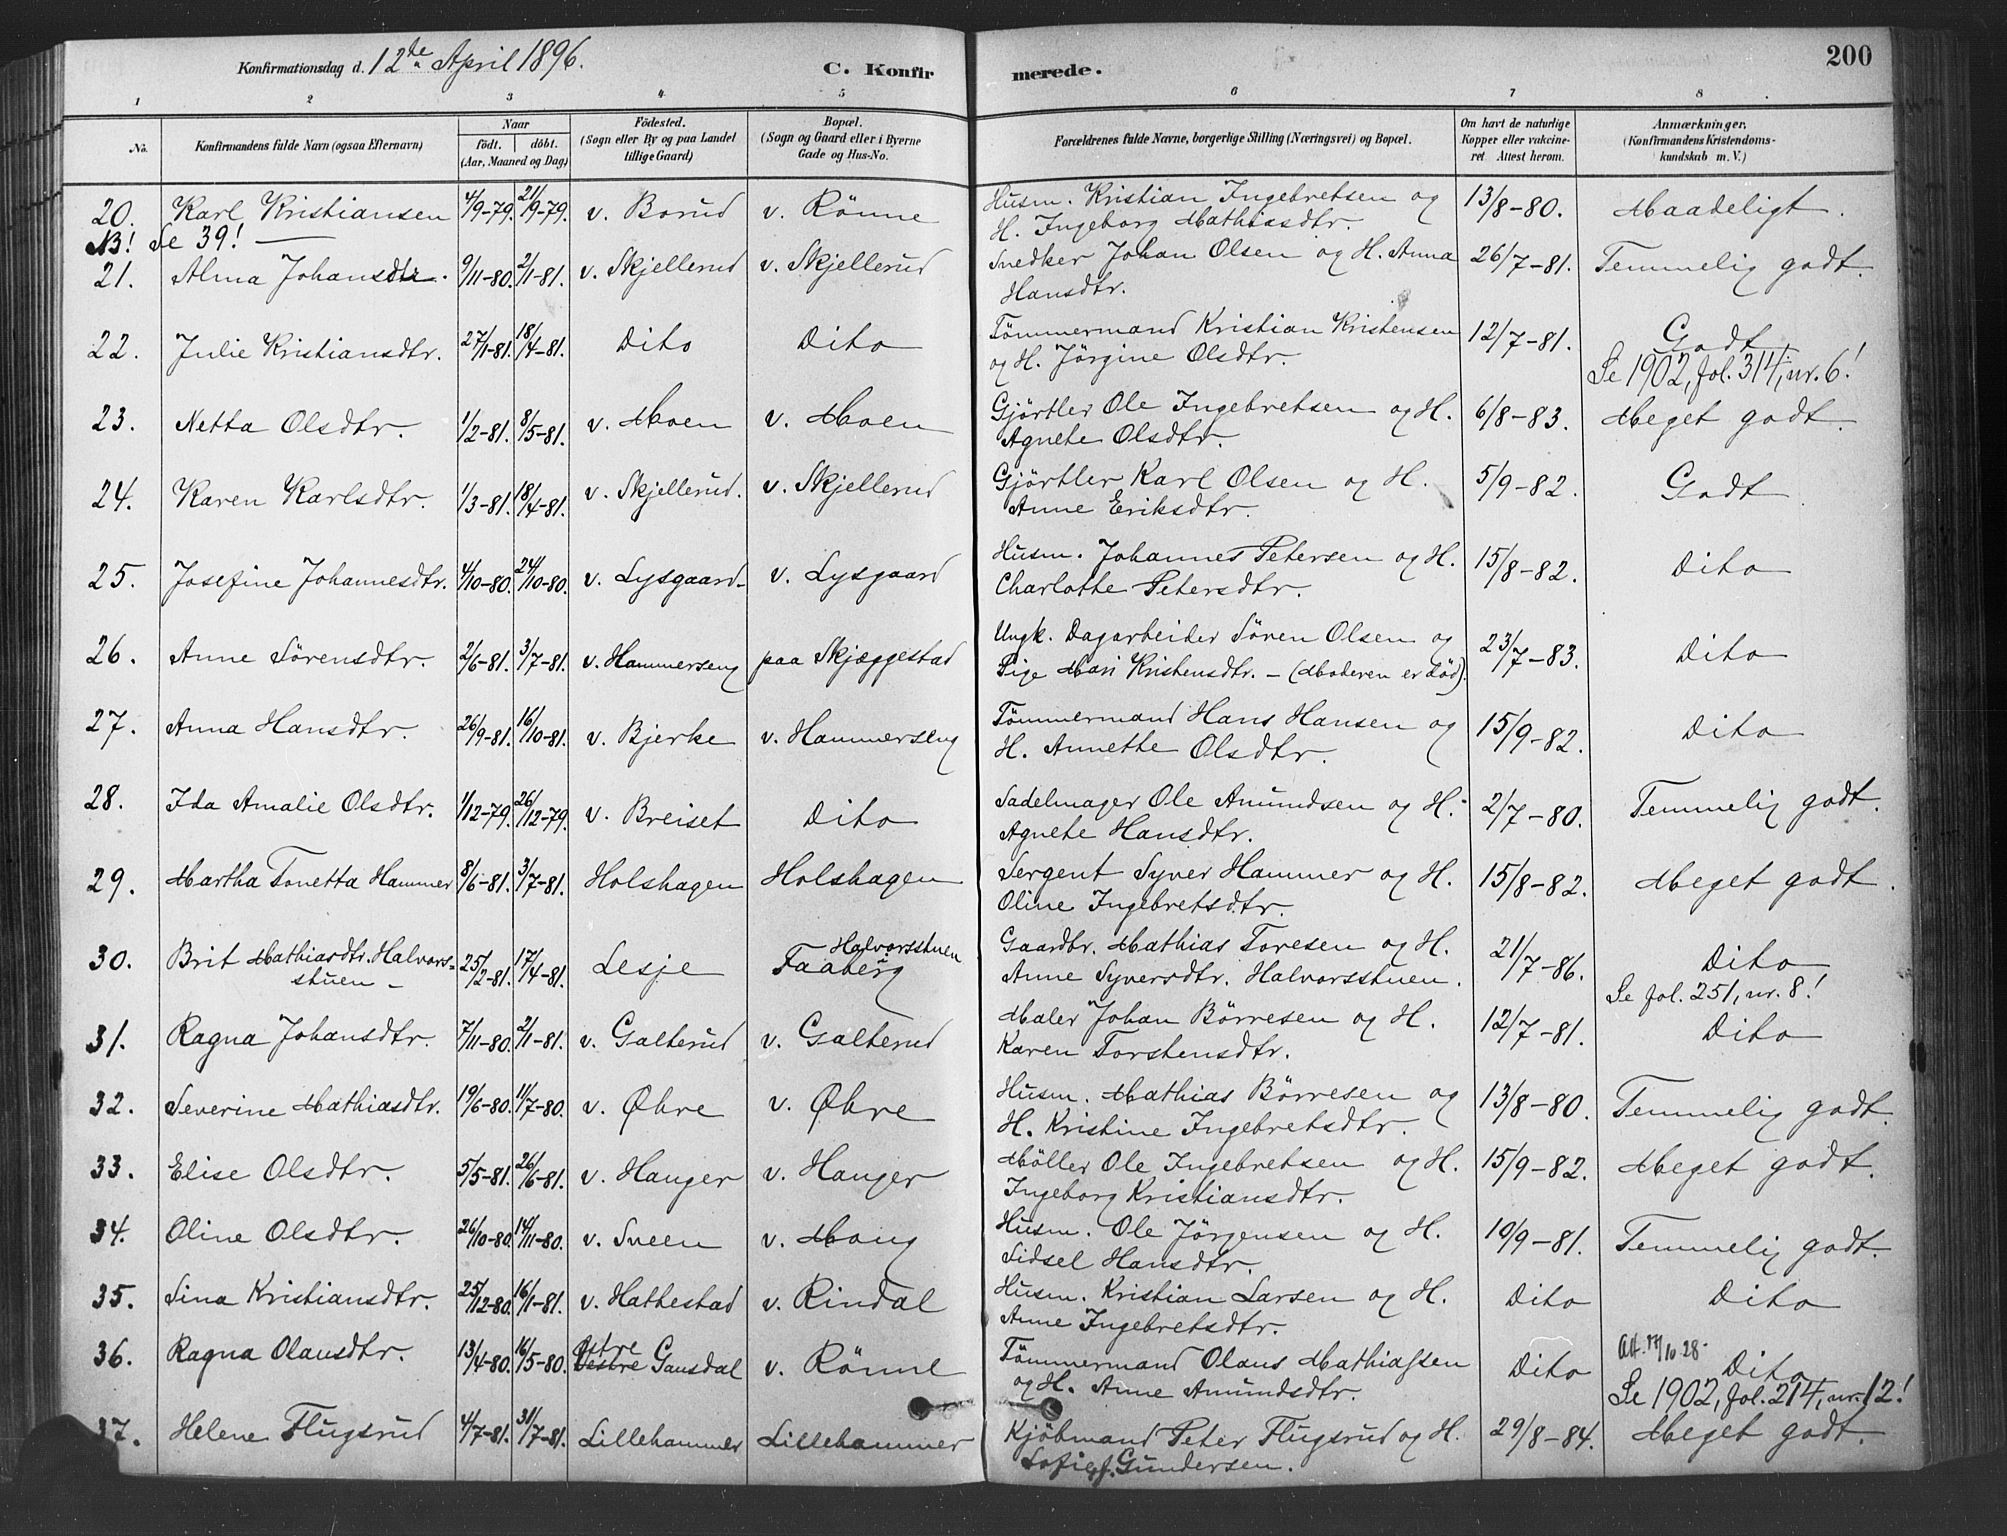 Konfirmationsdag d. 12te April 1896. C. Konfirmerede. 200
1 2 3 4 5 6 7 8
No. Konfirmandens fulde Navn (ogsaa Efternavn) Naar født. døbt. (Aar, Maaned og Dag) Födested. (Sogn eller By og paa Landet tillige Gaard) Bopæl. (Sogn og Gaard eller i Byerne Gade og Hus-No. Forældrenes fulde Navne, borgerlige Stilling (Næringsvei) og Bopæl. Om havt de naturlige Kopper eller vakcineret Attest herom. Anmærkninger. (Konfirmandens Kristendomskundskab m. V.)
20. Karl Kristiansen 4/9-79. 21/9-79. v. Borud v. Rönne Husm. Kristian Ingebretsen og 13/8-80. Maadeligt.
H. Ingeborg Mathiasdtr.
NB! Se 39!
21. Alma Johansdtr. 9/11-80. 2/1-81. v. Skjellerud v. Skjellerud Snedker Johan Olsen og H. Anna 26/7-81. Temmelig godt.
Hansdtr.
22. Julie Kristiansdtr. 27/1-81. 18/4-81. Dito Dito Tømmermand Kristian Kristensen 12/7-81. Godt
og H. Jörgine Olsdtr. Se 1902, fol. 314, nr. 6!
23. Netta Olsdtr. 1/2-81. 8/5-81. v. Moen v. Moen Gjörtler Ole Ingebretsen og H. 6/8-83. Meget godt.
Agnete Olsdtr.
24. Karen Karlsdtr. 1/3-81. 18/4-81. v. Skjellerud. v. Skjellerud Gjörtler Karl Olsen og H. 5/9-82. Godt
Anne Eriksdtr.
25. Josefine Johannesdtr. 4/10-80. 24/10-80. v. Lysgaard- v. Lysgaard Husm. Johannes Petersen og H. 15/8-82. Dito
Charlotte Petersdtr.
26. Anne Sörensdtr. 2/6-81. 3/7-81. v. Hammerseng paa Skjæggestad Ungk. Dagarbeider Sören Olsen og 23/7-83. Dito
Pige Mari Kristensdtr. - (Moderen er död).
27. Anna Hansdtr. 26/9-81. 16/10-81. v. Bjerke v. Hammerseng Tømmermand Hans Hansen og 15/9-82. Dito
H. Annette Olsdtr.
28. Ida Amalie Olsdtr. 1/12-79. 26/12-79. v. Breiset Dito Sadelmager Ole Amundsen og H. 2/7-80. Temmelig godt.
Agnete Hansdtr.
29. Martha Tonetta Hammer 8/6-81. 3/7-81. Holshagen Holshagen Sergent Syver Hammer og H. 15/8-82. Meget godt.
Oline Ingebretsdtr.
30. Brit Mathiasdtr. Halvors- 25/2-81. 17/4-81. Lesje Halvorsstuen Faaberg Gaardbr. Mathias Toresen og H. 21/7-86. Dito
stuen - Anne Syversdtr. Halvorsstuen. Se fol. 251, nr. 8!
31. Ragna Johansdtr. 7/11-80. 2/1-81. v. Galterud v. Galterud Maler Johan Börresen og H. 12/7-81. Dito
Karen Torstensdtr.
32. Severine Mathiasdtr. 19/6-80. 11/7-80. v. Øhre v. Øhre Husm. Mathias Börresen og 13/8-80. Temmelig godt.
H. Kristine Ingebretsdtr.
33. Elise Olsdtr. 5/5-81. 26/6-81. v. Hanger v. Hanger Möller Ole Ingebretsen og H. 15/9-82. Meget godt.
Ingeborg Kristiansdtr.
34. Oline Olsdtr. 26/10-80. 14/11-80. v. Sveen v. Moug Husm. Ole Jörgensen og H. 10/9-81. Temmelig godt.
Sidsel Hansdtr.
35. Sina Kristiansdtr. 25/12-80. 16/1-81. v. Hattestad v. Rindal Husm. Kristian Larsen og H. Dito Dito
Anne Ingebretsdtr.
36. Ragna Olausdtr. 13/4-80. 16/5-80. Østre Vestre Gausdal v. Rönne Tømmermand Olaus Mathiassen Dito Att. 17/10-28- Dito
og H. Anne Amundsdtr. Se 1902, fol. 214, nr. 12!
37. Helene Flugsrud 4/7-81. 31/7-81. Lillehammer Lillehammer Kjöbmand Peter Flugsrud og H. 29/8-84. Meget godt.
Sofie f. Gundersen.